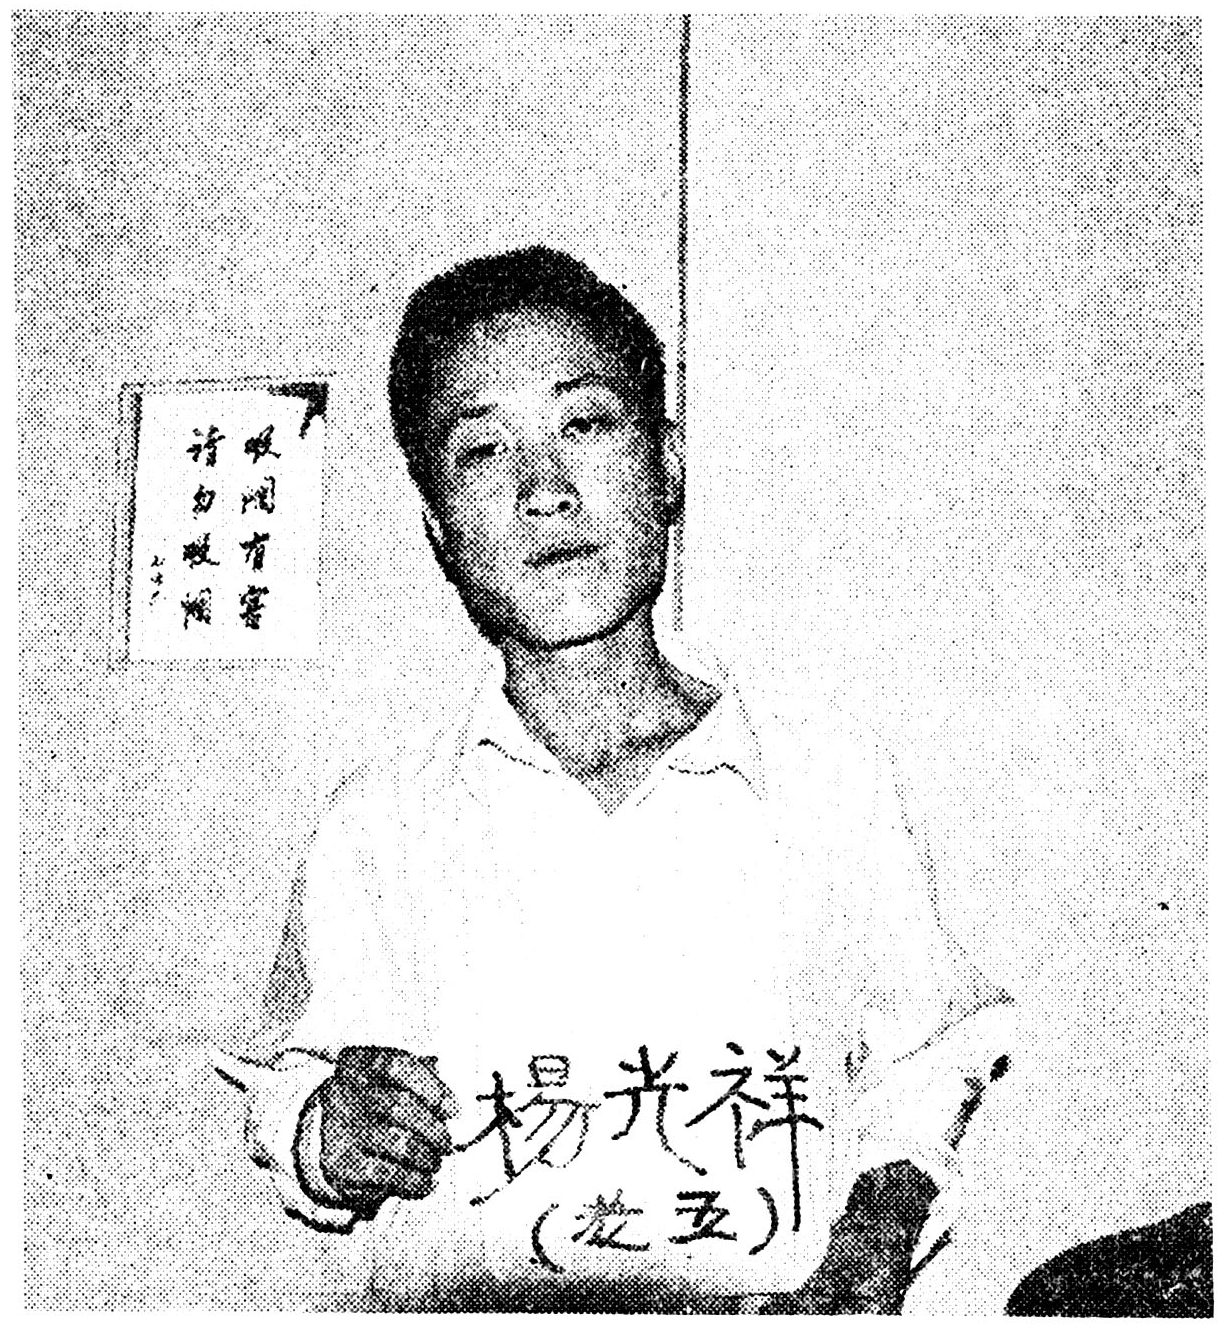 吸烟有害
请勿吸烟
楊光祥
(老五)